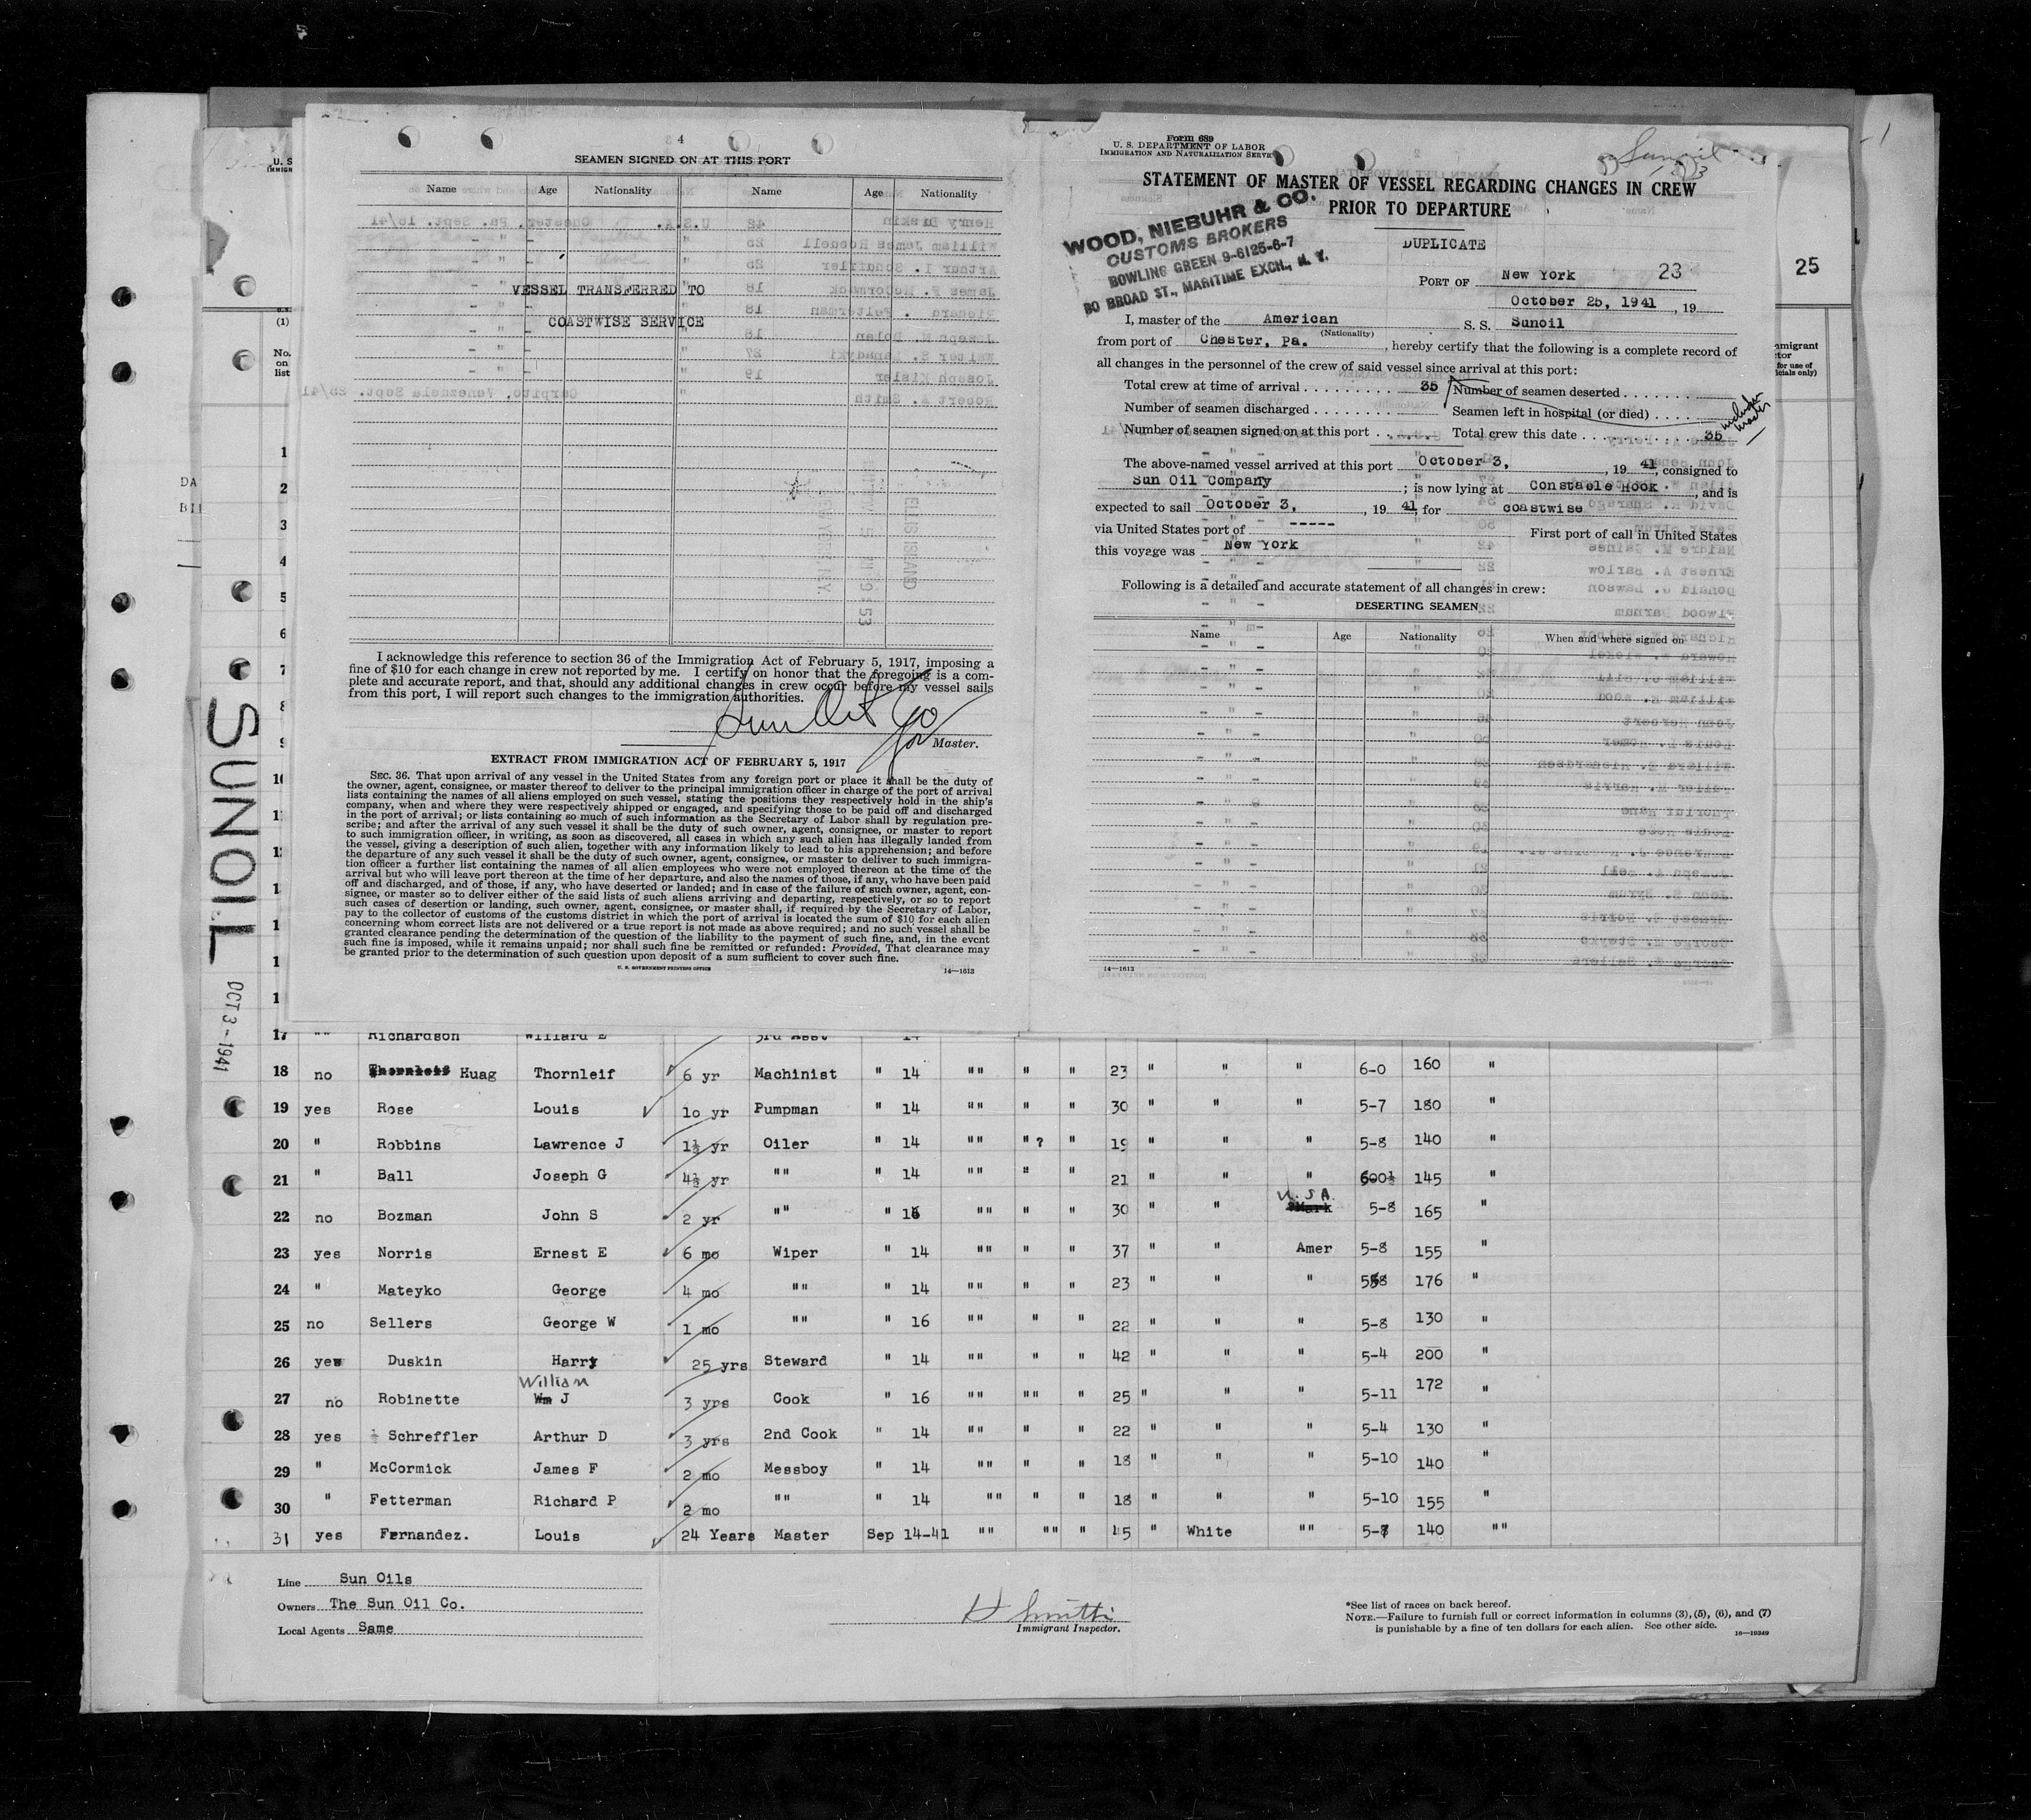 4
SEAMEN SIGNED ON AT THIS PORT
Name Age Nationality Name Age Nationality
VESSEL TRANSFERRED TO
COASTWISE SERVICE
I acknowledge this reference to section 36 of the Immigration Act of February 5, 1917, imposing a
fine of $10 for each change in crew not reported by me. I certify on honor that the foregoing is a com-
plete and accurate report, and that, should any additional changes in crew occur before my vessel sails
from this port, I will report such changes to the immigration authorities.
Sun Oil Co
Master.
EXTRACT FROM IMMIGRATION ACT OF FEBRUARY 5, 1917
SEC. 36. That upon arrival of any vessel in the United States from any foreign port or place it shall be the duty of
the owner, agent, consignee, or master thereof to deliver to the principal immigration officer in charge of the port of arrival
lists containing the names of all aliens employed on such vessel, stating the positions they respectively hold in the ship's
company, when and where they were respectively shipped or engaged, and specifying those to be paid off and discharged
in the port of arrival; or lists containing so much of such information as the Secretary of Labor shall by regulation pre-
scribe; and after the arrival of any such vessel it shall be the duty of such owner, agent, consignee, or master to report
to such immigration officer, in writing, as soon as discovered, all cases in which any such alien has illegally landed from
the vessel, giving a description of such alien, together with any information likely to lead to his apprehension; and before
the departure of any such vessel it shall be the duty of such owner, agent, consignee, or master to deliver to such immigra-
tion officer a further list containing the names of all alien employees who were not employed thereon at the time of the
arrival but who will leave port thereon at the time of her departure, and also the names of those, if any, who have been paid
off and discharged, and of those, if any, who have deserted or landed; and in case of the failure of such owner, agent, con-
signee, or master so to deliver either of the said lists of such aliens arriving and departing, respectively, or so to report
such cases of desertion or landing, such owner, agent, consignee, or master shall, if required by the Secretary of Labor,
pay to the collector of customs of the customs district in which the port of arrival is located the sum of $10 for each alien
concerning whom correct lists are not delivered or a true report is not made as above required; and no such vessel shall be
granted clearance pending the determination of the question of the liability to the payment of such fine, and, in the event
such fine is imposed, while it remains unpaid; nor shall such fine be remitted or refunded: Provided, That clearance may
be granted prior to the determination of such question upon deposit of a sum sufficient to cover such fine.
U. S. GOVERNMENT PRINTING OFFICE 14—1613
Form 689
U. S. DEPARTMENT OF LABOR
IMMIGRATION AND NATURALIZATION SERVICE
Sunoil
STATEMENT OF MASTER OF VESSEL REGARDING CHANGES IN CREW
PRIOR TO DEPARTURE
WOOD, NIEBUHR & CO.
CUSTOMS BROKERS
BOWLING GREEN 9-6125-6-7
80 BROAD ST., MARITIME EXCH., N. Y.
DUPLICATE
PORT OF New York 23
October 25, 1941, 19
I, master of the American S. S. Sunoil
(Nationality)
from port of Chester, Pa., hereby certify that the following is a complete record of
all changes in the personnel of the crew of said vessel since arrival at this port:
Total crew at time of arrival 35 Number of seamen deserted
Number of seamen discharged Seamen left in hospital (or died)
Number of seamen signed on at this port Total crew this date 35
includes master
The above-named vessel arrived at this port October 3, 19 41, consigned to
Sun Oil Company; is now lying at Constable Hook, and is
expected to sail October 3, 19 41, for coastwise
via United States port of ----- First port of call in United States
this voyage was New York
Following is a detailed and accurate statement of all changes in crew:
DESERTING SEAMEN
Name Age Nationality When and where signed on
14—1613
25
SUNOIL
OCT 3-1941
17 "" Richardson Willard E 3rd Asst 14
18 no Thornleif Huag Thornleif 6 yr Machinist " 14 "" " " 23 " " " 6-0 160 "
19 yes Rose Louis 10 yr Pumpman " 14 "" " " 30 " " " 5-7 180 "
20 " Robbins Lawrence J 1½ yr Oiler " 14 "" " ? " 19 " " " 5-8 140 "
21 " Ball Joseph G 4½ yr "" " 14 "" " " 21 " " " 600½ 145 "
U.S.A.
22 no Bozman John S 2 yr "" " 16 "" " " 30 " " 5-8 165 "
23 yes Norris Ernest E 6 mo Wiper " 14 "" " " 37 " " Amer 5-8 155 "
24 " Mateyko George 4 mo "" " 14 "" " " 23 " " " 5-8 176 "
25 no Sellers George W 1 mo "" " 16 "" " " 22 " " " 5-8 130 "
26 yes Duskin Harry 25 yrs Steward " 14 "" " " 42 " " " 5-4 200 "
William
27 no Robinette Wm J 3 yrs Cook " 16 "" "" " 25 " " " 5-11 172 "
28 yes Schreffler Arthur D 3 yrs 2nd Cook " 14 "" " " 22 " " " 5-4 130 "
29 " McCormick James F 2 mo Messboy " 14 "" " " 18 " " " 5-10 140 "
30 " Fetterman Richard P 2 mo "" " 14 "" " " 18 " " " 5-10 155 "
31 yes Fernandez. Louis 24 Years Master Sep 14-41 "" "" " 45 " White "" 5-7 140 ""
Line Sun Oils
Owners The Sun Oil Co.
Local Agents Same
H Smith
Immigrant Inspector.
*See list of races on back hereof.
NOTE.—Failure to furnish full or correct information in columns (3), (5), (6), and (7)
is punishable by a fine of ten dollars for each alien. See other side.
16—19349